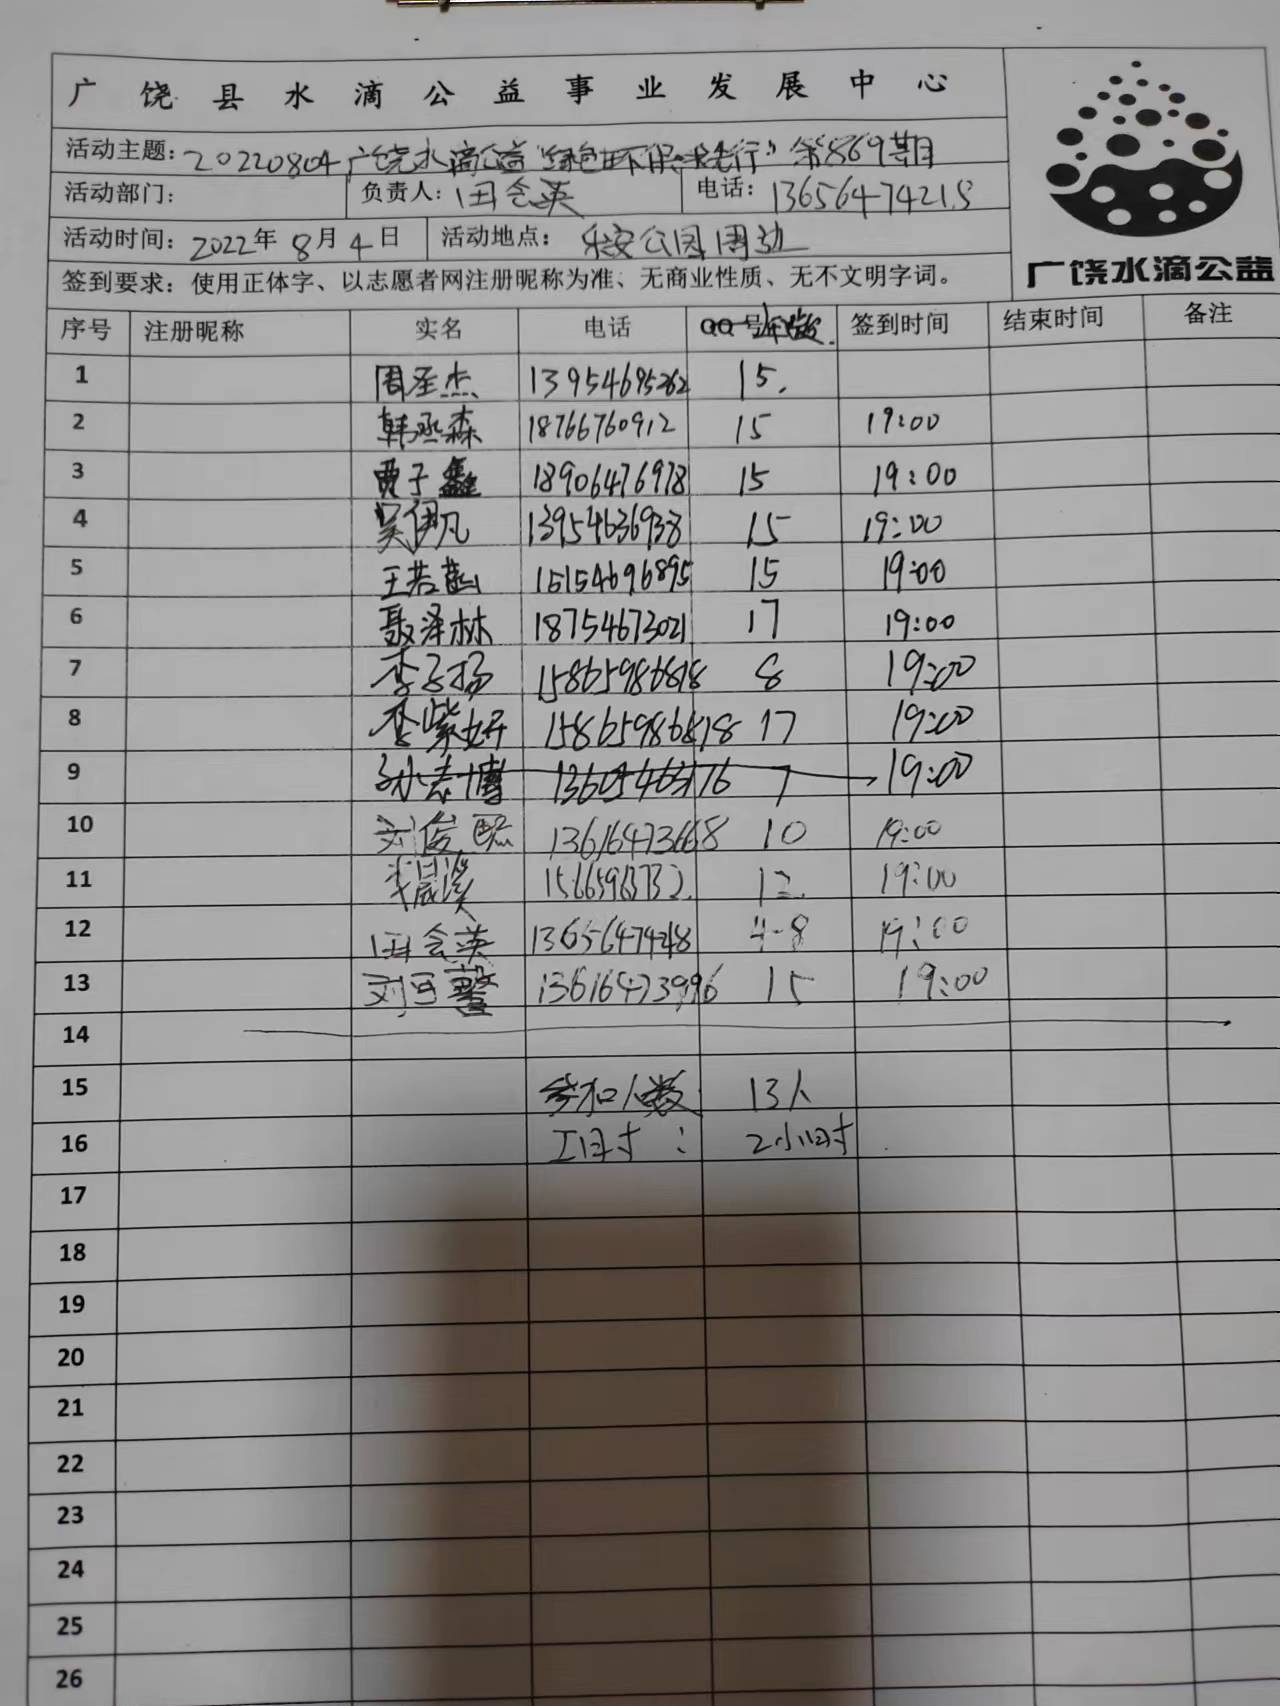 广饶县水滴公益事业发展中心
活动主题: 20220804广饶水滴公益"绿色环保 先行"第869期
活动部门: 负责人: 田会英 电话: 13656474218
活动时间: 2022年8月4日 活动地点: 乐安公园周边
签到要求: 使用正体字、以志愿者网注册昵称为准、无商业性质、无不文明字词。
广饶水滴公益
序号 注册昵称 实名 电话 QQ号 年龄 签到时间 结束时间 备注
1 周圣杰 13954695262 15.
2 韩丞森 18766760912 15 19:00
3 贾子鑫 18906476978 15 19:00
4 吴伊凡 13954636938 15 19:00
5 王若菡 15154696895 15 19:00
6 聂泽林 18754673021 17 19:00
7 李子扬 15865986818 8 19:00
8 李紫妍 15865986818 17 19:00
9 孙志博 7 19:00
10 刘俊熙 13616473668 10 19:00
11 15665963732. 12. 19:00
12 田会英 13656474218 48 19:00
13 刘可馨 13616473996 15 19:00
14
15 参加人数 13人
16 工时: 2小时
17
18
19
20
21
22
23
24
25
26